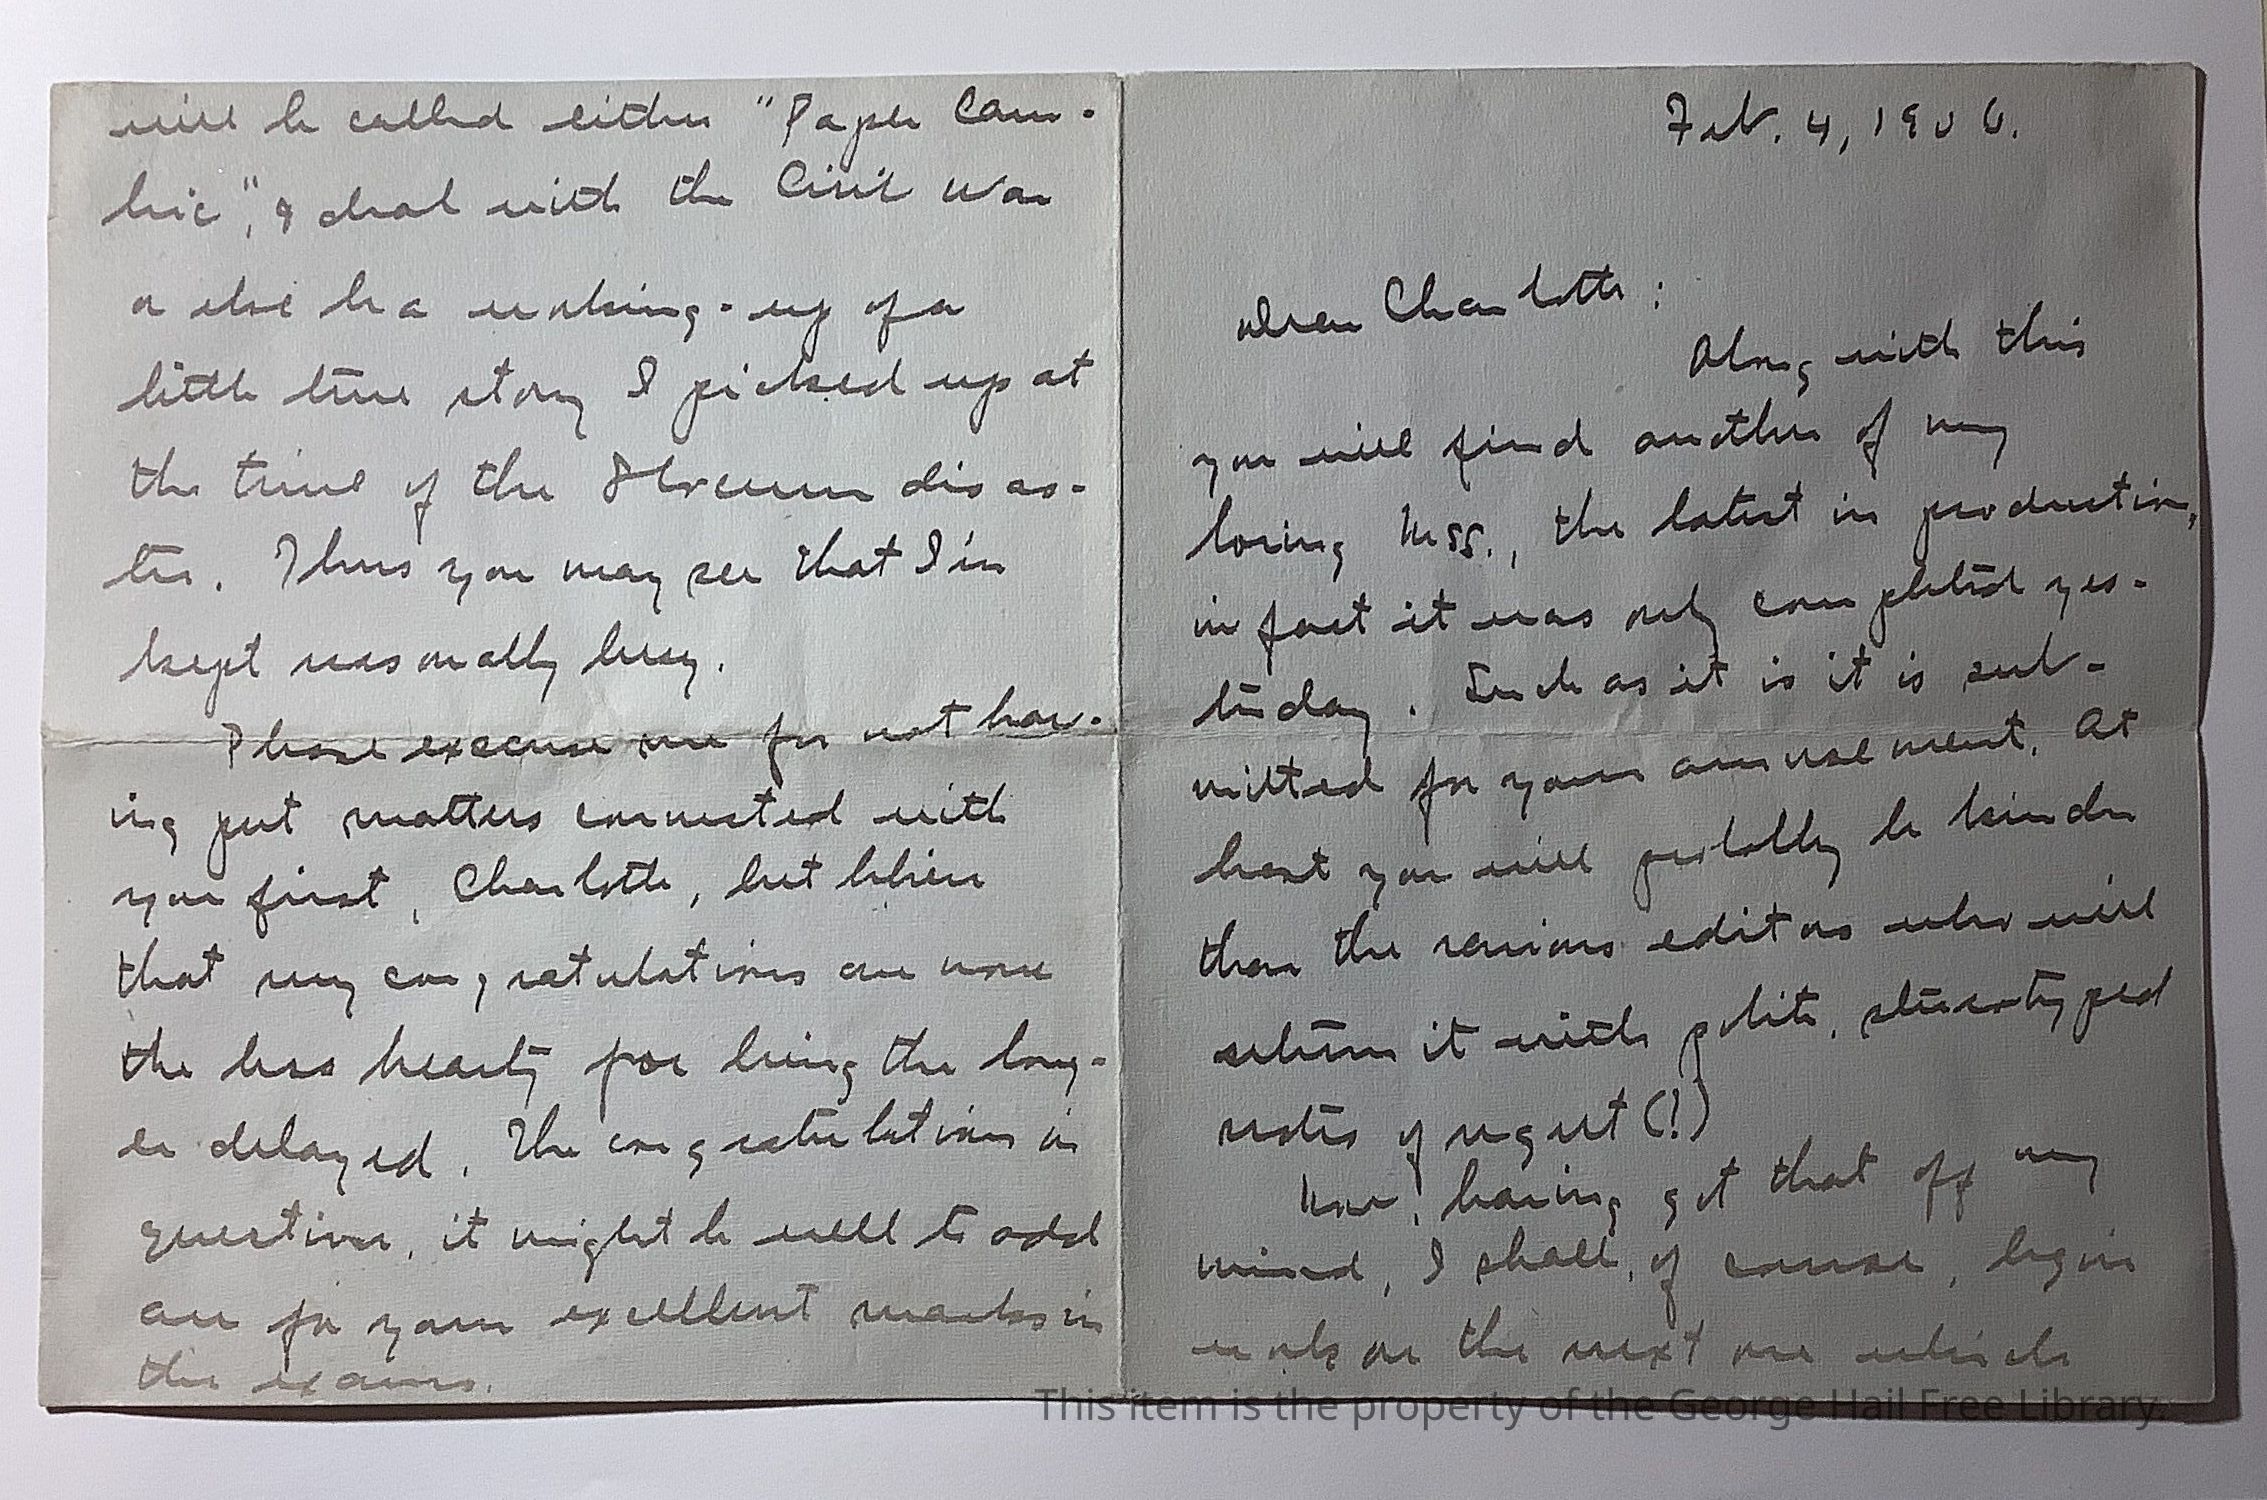 Feb. 4, 1906.
Dear Charlotte:
Along with this
you will find another of my
loving Mss., the latest in production,
in fact it was only completed yes-
terday. Such as it is it is sub-
mitted for your amusement. At
least you will probably be kinder
than the various editors who will
return it with polite, stereotyped
notes of regret (!)
Now, having got that off my
mind, I shall, of course, begin
work on the next one which
will be called either "Paper Cam-
bric", & deal with the Civil War
or else be a working-up of a
little true story I picked up at
the time of the Slocum disas-
ter. Thus you may see that I'm
kept reasonably busy.
Please excuse me for not hav-
ing put matters connected with
you first, Charlotte, but believe
that my congratulations are none
the less hearty for being the long-
er delayed. The congratulations in
question, it might be well to add
are for your excellent marks in
the exams.
This item is the property of the George Hail Free Library.